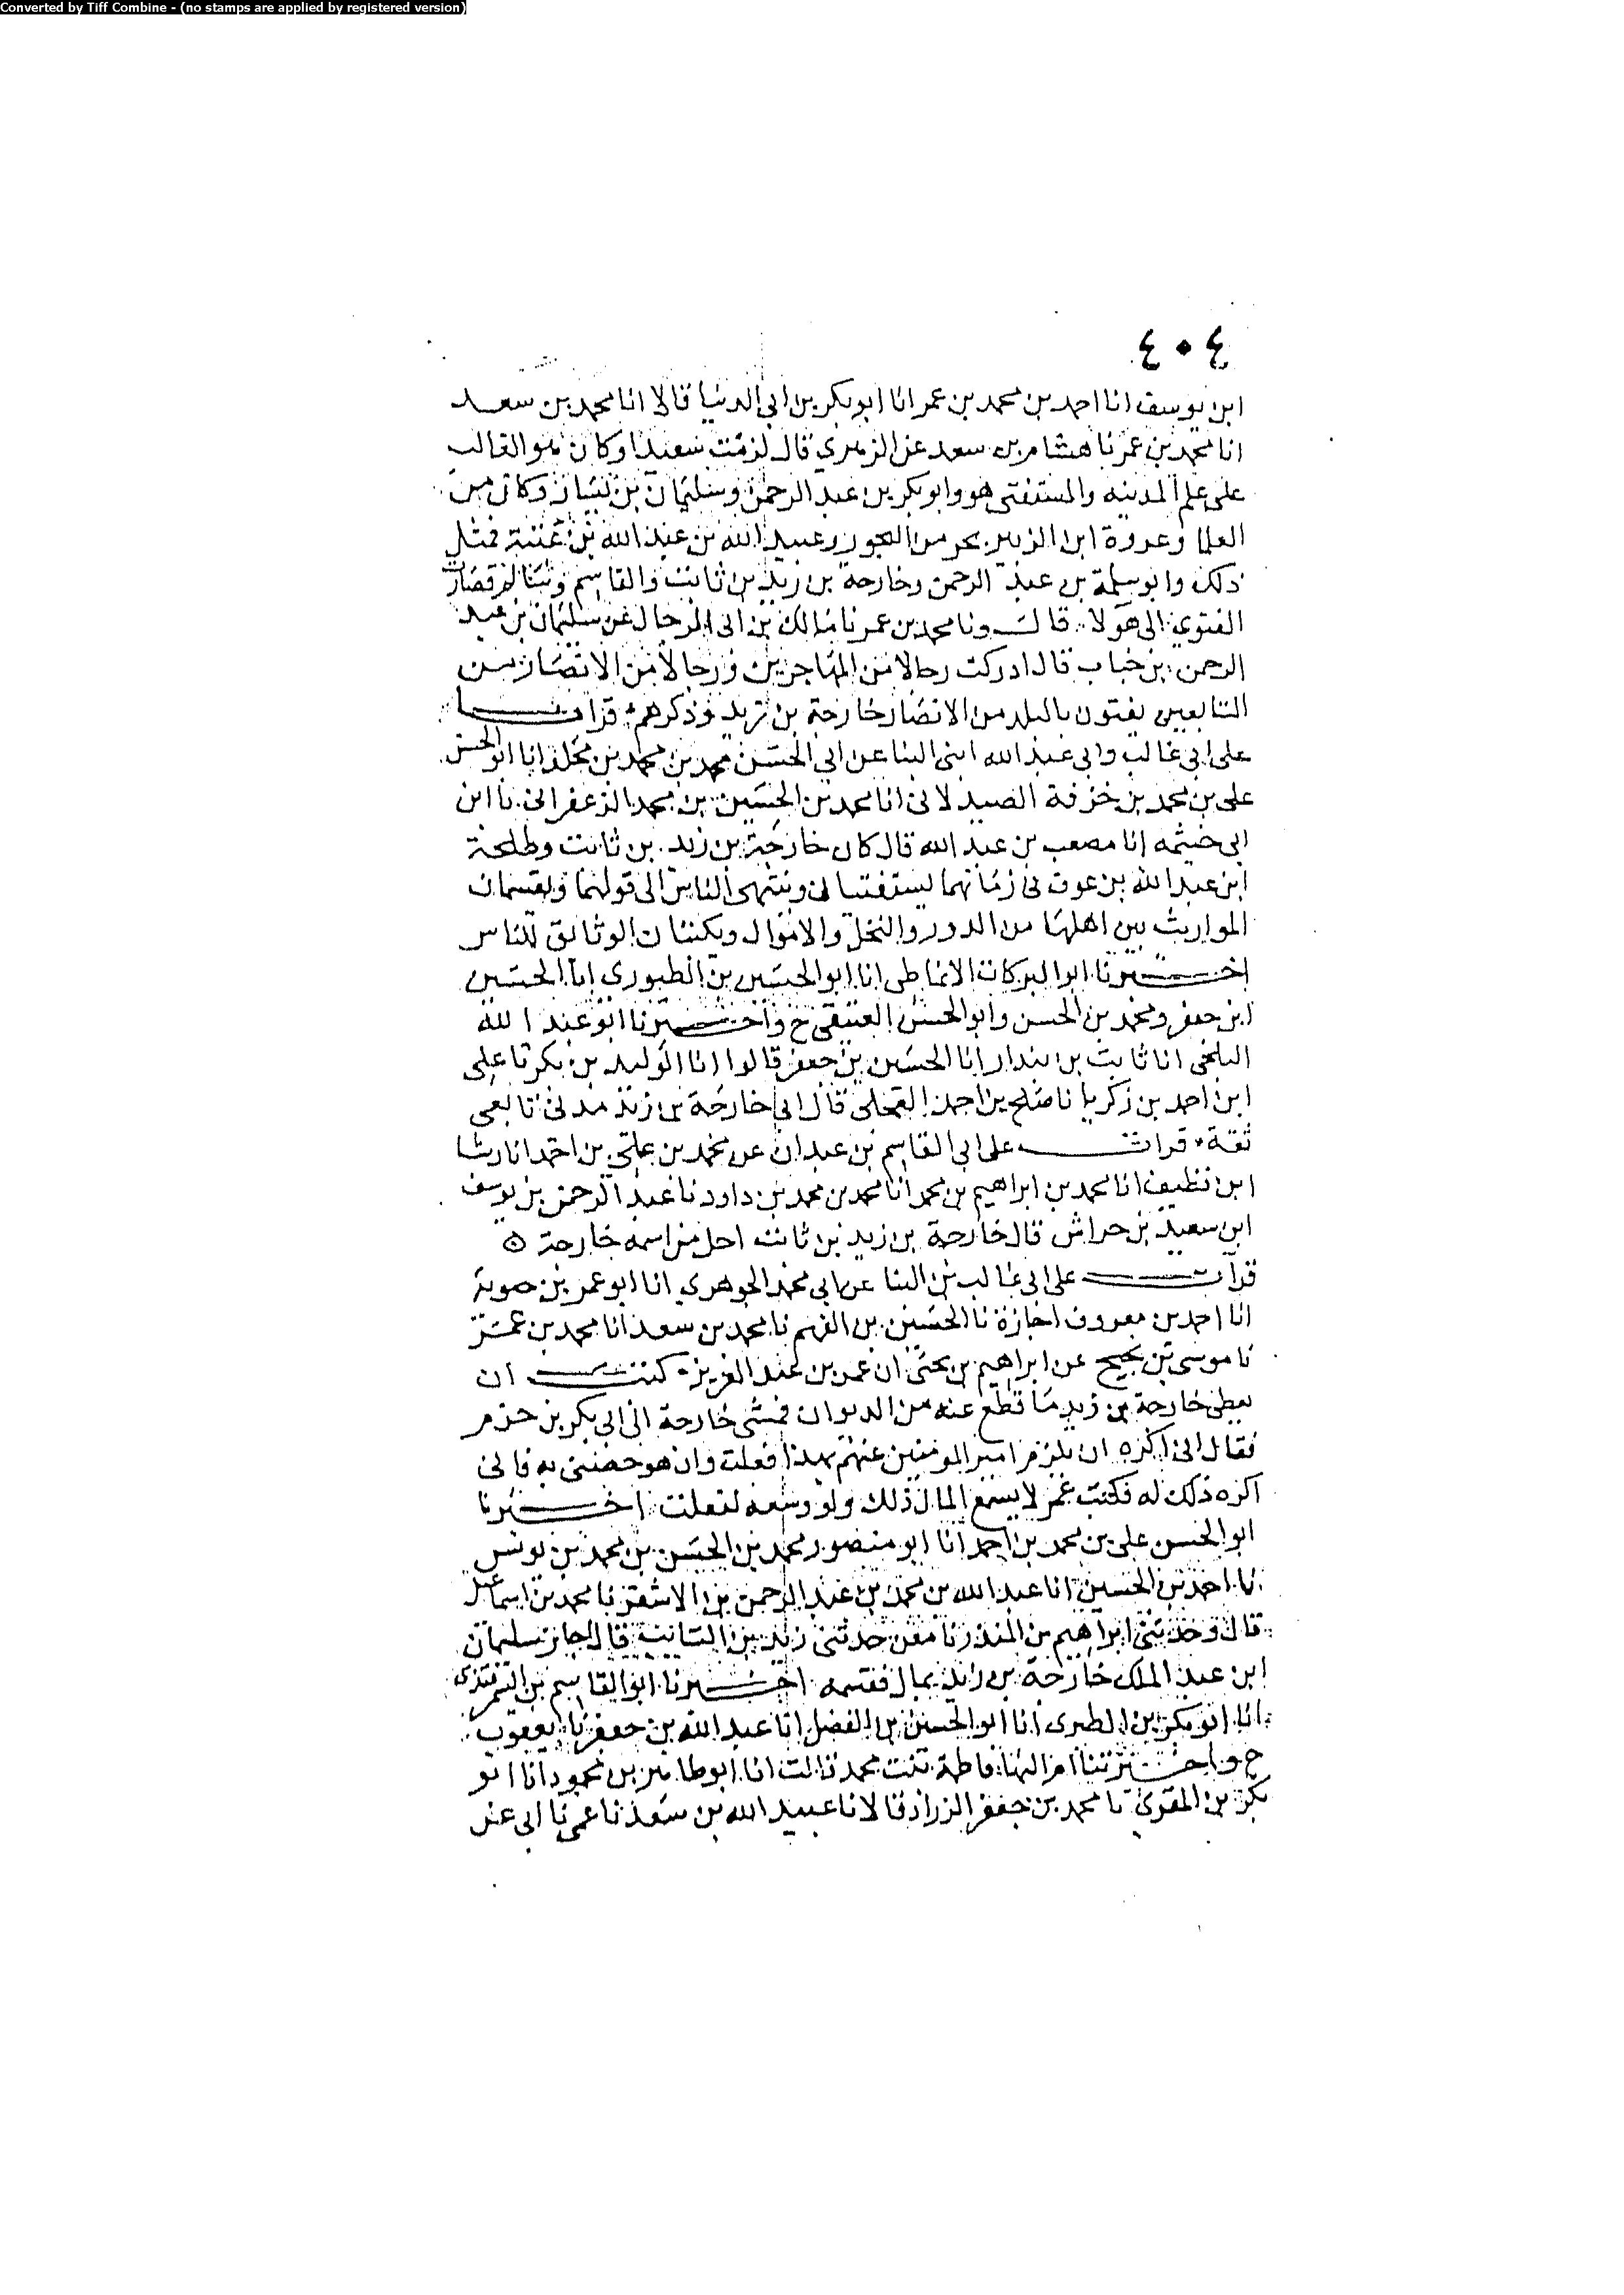 Converted by Tiff Combine - (no stamps are applied by registered version)
٤٠٤
ابن يوسف انا احمد بن محمد بن عمر انا ابو بكر بن ابى الدنيا قالا انا محمد بن سعد
انا محمد بن عمر نا هشام بن سعد عن الزهري قال لزمت سعيدا وكان هو الغالب
على علم المدينه والمستفتى هو وابو بكر بن عبد الرحمن وسليمان بن يسار وكان من
العلما وعروة ابن الزبير بحر من البحور وعبيد الله بن عبد الله بن عتبة فمثل
ذلك وابو سلمة بن عبد الرحمن وخارجة بن زيد بن ثابت والقاسم وسالم فصارت
الفتوي الى هولا قال ونا محمد بن عمر نا مالك بن ابى الرجال عن سليمان بن عبد
الرحمن بن خباب قال ادركت رجالا من المهاجرين ورجالا من الانصار من
التابعين يفتون بالبلد من الانصار خارجة بن زيد وذكرهم قرانا
على ابى غالب وابى عبد الله ابنى البنا عن ابي الحسن محمد بن محمد بن مخلد انا ابو الحسن
على بن محمد بن خزفة الصيدلانى انا محمد بن الحسين بن محمد الزعفرانى نا ابن
ابى خيثمه انا مصعب بن عبد الله قال كان خارجة بن زيد بن ثابت وطلحة
ابن عبد الله بن عوف فى زمانهما يستفتيان وينتهى الناس الى قولهما ويقسمان
المواريث بين اهلها من الدور والنخل والاموال ويكتبان الوثائق للناس
اخبرنا ابو البركات الانماطى انا ابو الحسين بن الطيورى انا الحسين
ابن جعفر ومحمد بن الحسن وابو الحسن العتيقى ح واخبرنا ابو عبد الله
البلخى انا ثابت بن بندار انا الحسين بن جعفر قالوا انا الوليد بن بكر نا على
ابن احمد بن زكريا نا صلح بن احمد العجلى قال ابى خارجة بن زيد مدنى تابعى
ثقة قرات على ابى القاسم بن عبدان عن محمد بن على بن احمد انا رشا
ابن نظيف انا محمد بن ابراهيم بن محمد انا محمد بن محمد بن داود نا عبد الرحمن بن يوسف
ابن سعيد بن خراش قال خارجة بن زيد بن ثابت اجل من اسمه خارجة
قرات على ابى غالب بن البنا عن ابي محمد الجوهري انا ابو عمر بن حيوية
انا احمد بن معروف اجازة نا الحسين بن الفهم نا محمد بن سعد انا محمد بن عمر
نا موسى بن نجيح عن ابراهيم بن يحيى ان عمر بن عبد العزيز كتب ان
يعطى خارجة بن زيد ما قطع عنه من الديوان فمشى خارجة الى ابى بكر بن حزم
فقال انى اكره ان يلزم امير المومنين هذا فعلت وان هو خصنى به فانى
اكره ذلك له فكتب عمر لا يسع المال ذلك ولو وسعه لفعلت اخبرنا
ابو الحسن على بن محمد بن احمد انا ابو منصور محمد بن الحسن بن محمد بن يونس
نا احمد بن الحسين انا عبد الله بن محمد بن عبد الرحمن بن الاشقر نا محمد بن اسماعيل
قال وحدثنى ابراهيم بن المنذر نا معن حدثنى زيد بن السايب قال اجاز سليمان
ابن عبد الملك خارجة بن زيد بمال فقسمه اخبرنا ابو القاسم بن السمرقندى
انا ابو بكر بن الطبرى انا ابو الحسين بن الفضل انا عبد الله بن جعفر نا يعقوب
ح واخبرتنا ام البها فاطمة بنت محمد قالت انا ابو طاهر بن محمود انا ابو
بكر بن المقرى نا محمد بن جعفر الزراد قالا نا عبيد الله بن سعد نا عمى نا ابى عن